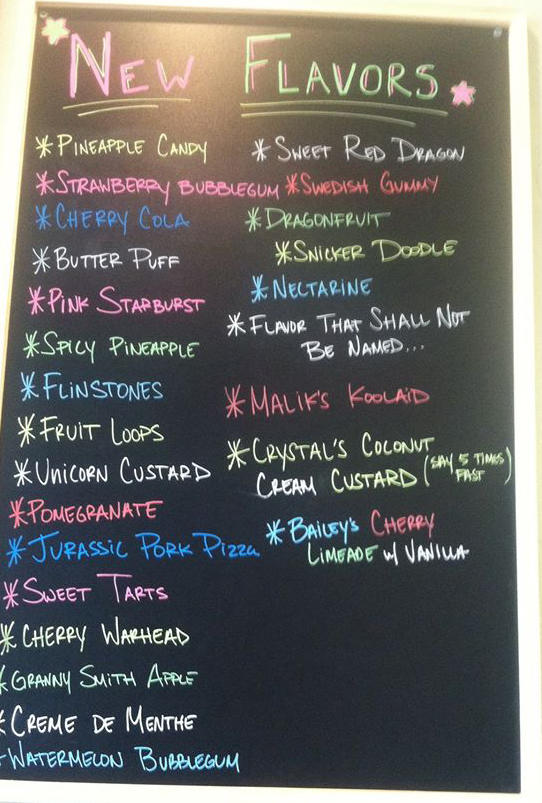 New Flavors
* Pineapple Candy
* Strawberry Bubblegum
* Cherry Cola
* Butter Puff
* Pink Starburst
* Spicy Pineapple
* Flinstones
* Fruit Loops
* Unicorn Custard
* Pomegranate
* Jurassic Pork Pizza
* Sweet Tarts
* Cherry Warhead
* Granny Smith Apple
* Creme de Menthe
* Watermelon Bubblegum
* Sweet Red Dragon
* Swedish Gummy
* Dragonfruit
* Snicker Doodle
* Nectarine
* Flavor That Shall Not
Be Named...
* Malik's Koolaid
* Crystal's Coconut
Cream Custard (Say 5 Times
Fast)
* Bailey's Cherry
Limeade w/ Vanilla